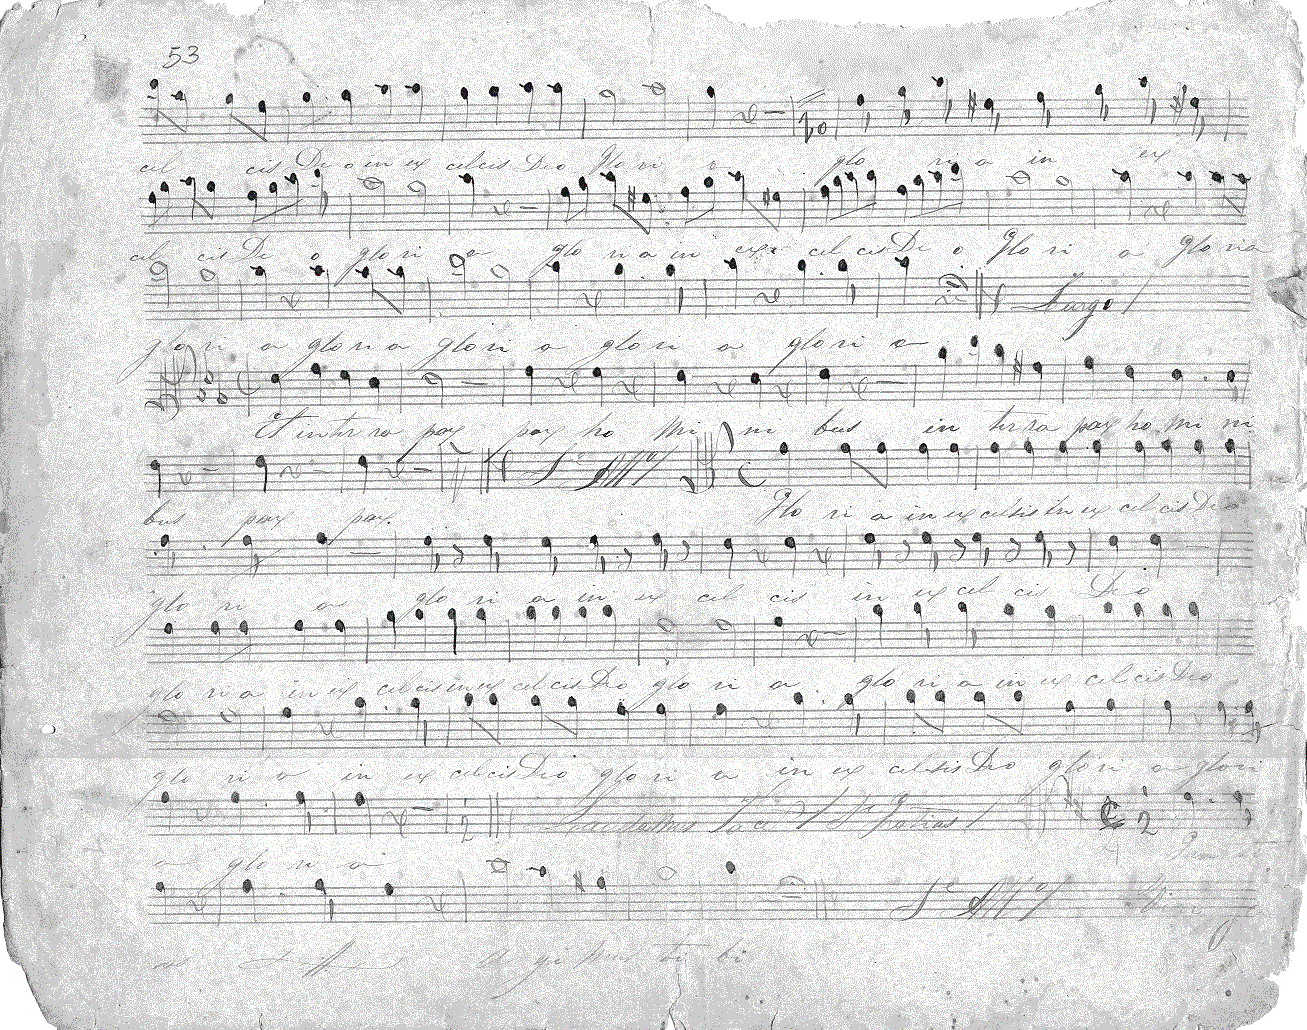 53
cel cis De o in ex celcis Deo Glo ri a glo ri a in ex
cel cis De o glo ri a glo ri a in ex cel cis De o Glo ri a glo ria
glo ri a glo ri a glo ri a glo ri a glo ri a
Largo
Et in ter ra pax pax ho mi ni bus in ter ra pax ho mi ni
bus pax pax. Glo ri a in ex celsis in ex cel cis Deo
glo ri a glo ri a in ex cel cis in ex cel cis Deo
glo ri a in ex cel cis in ex cel cis Deo glo ri a glo ri a in ex cel cis Deo
glo ri a in ex cel cis Deo glo ri a in ex celsis Deo glo ri a glori
Laudamus Tace Gratias
a glo ri a
a gi mus ti bi